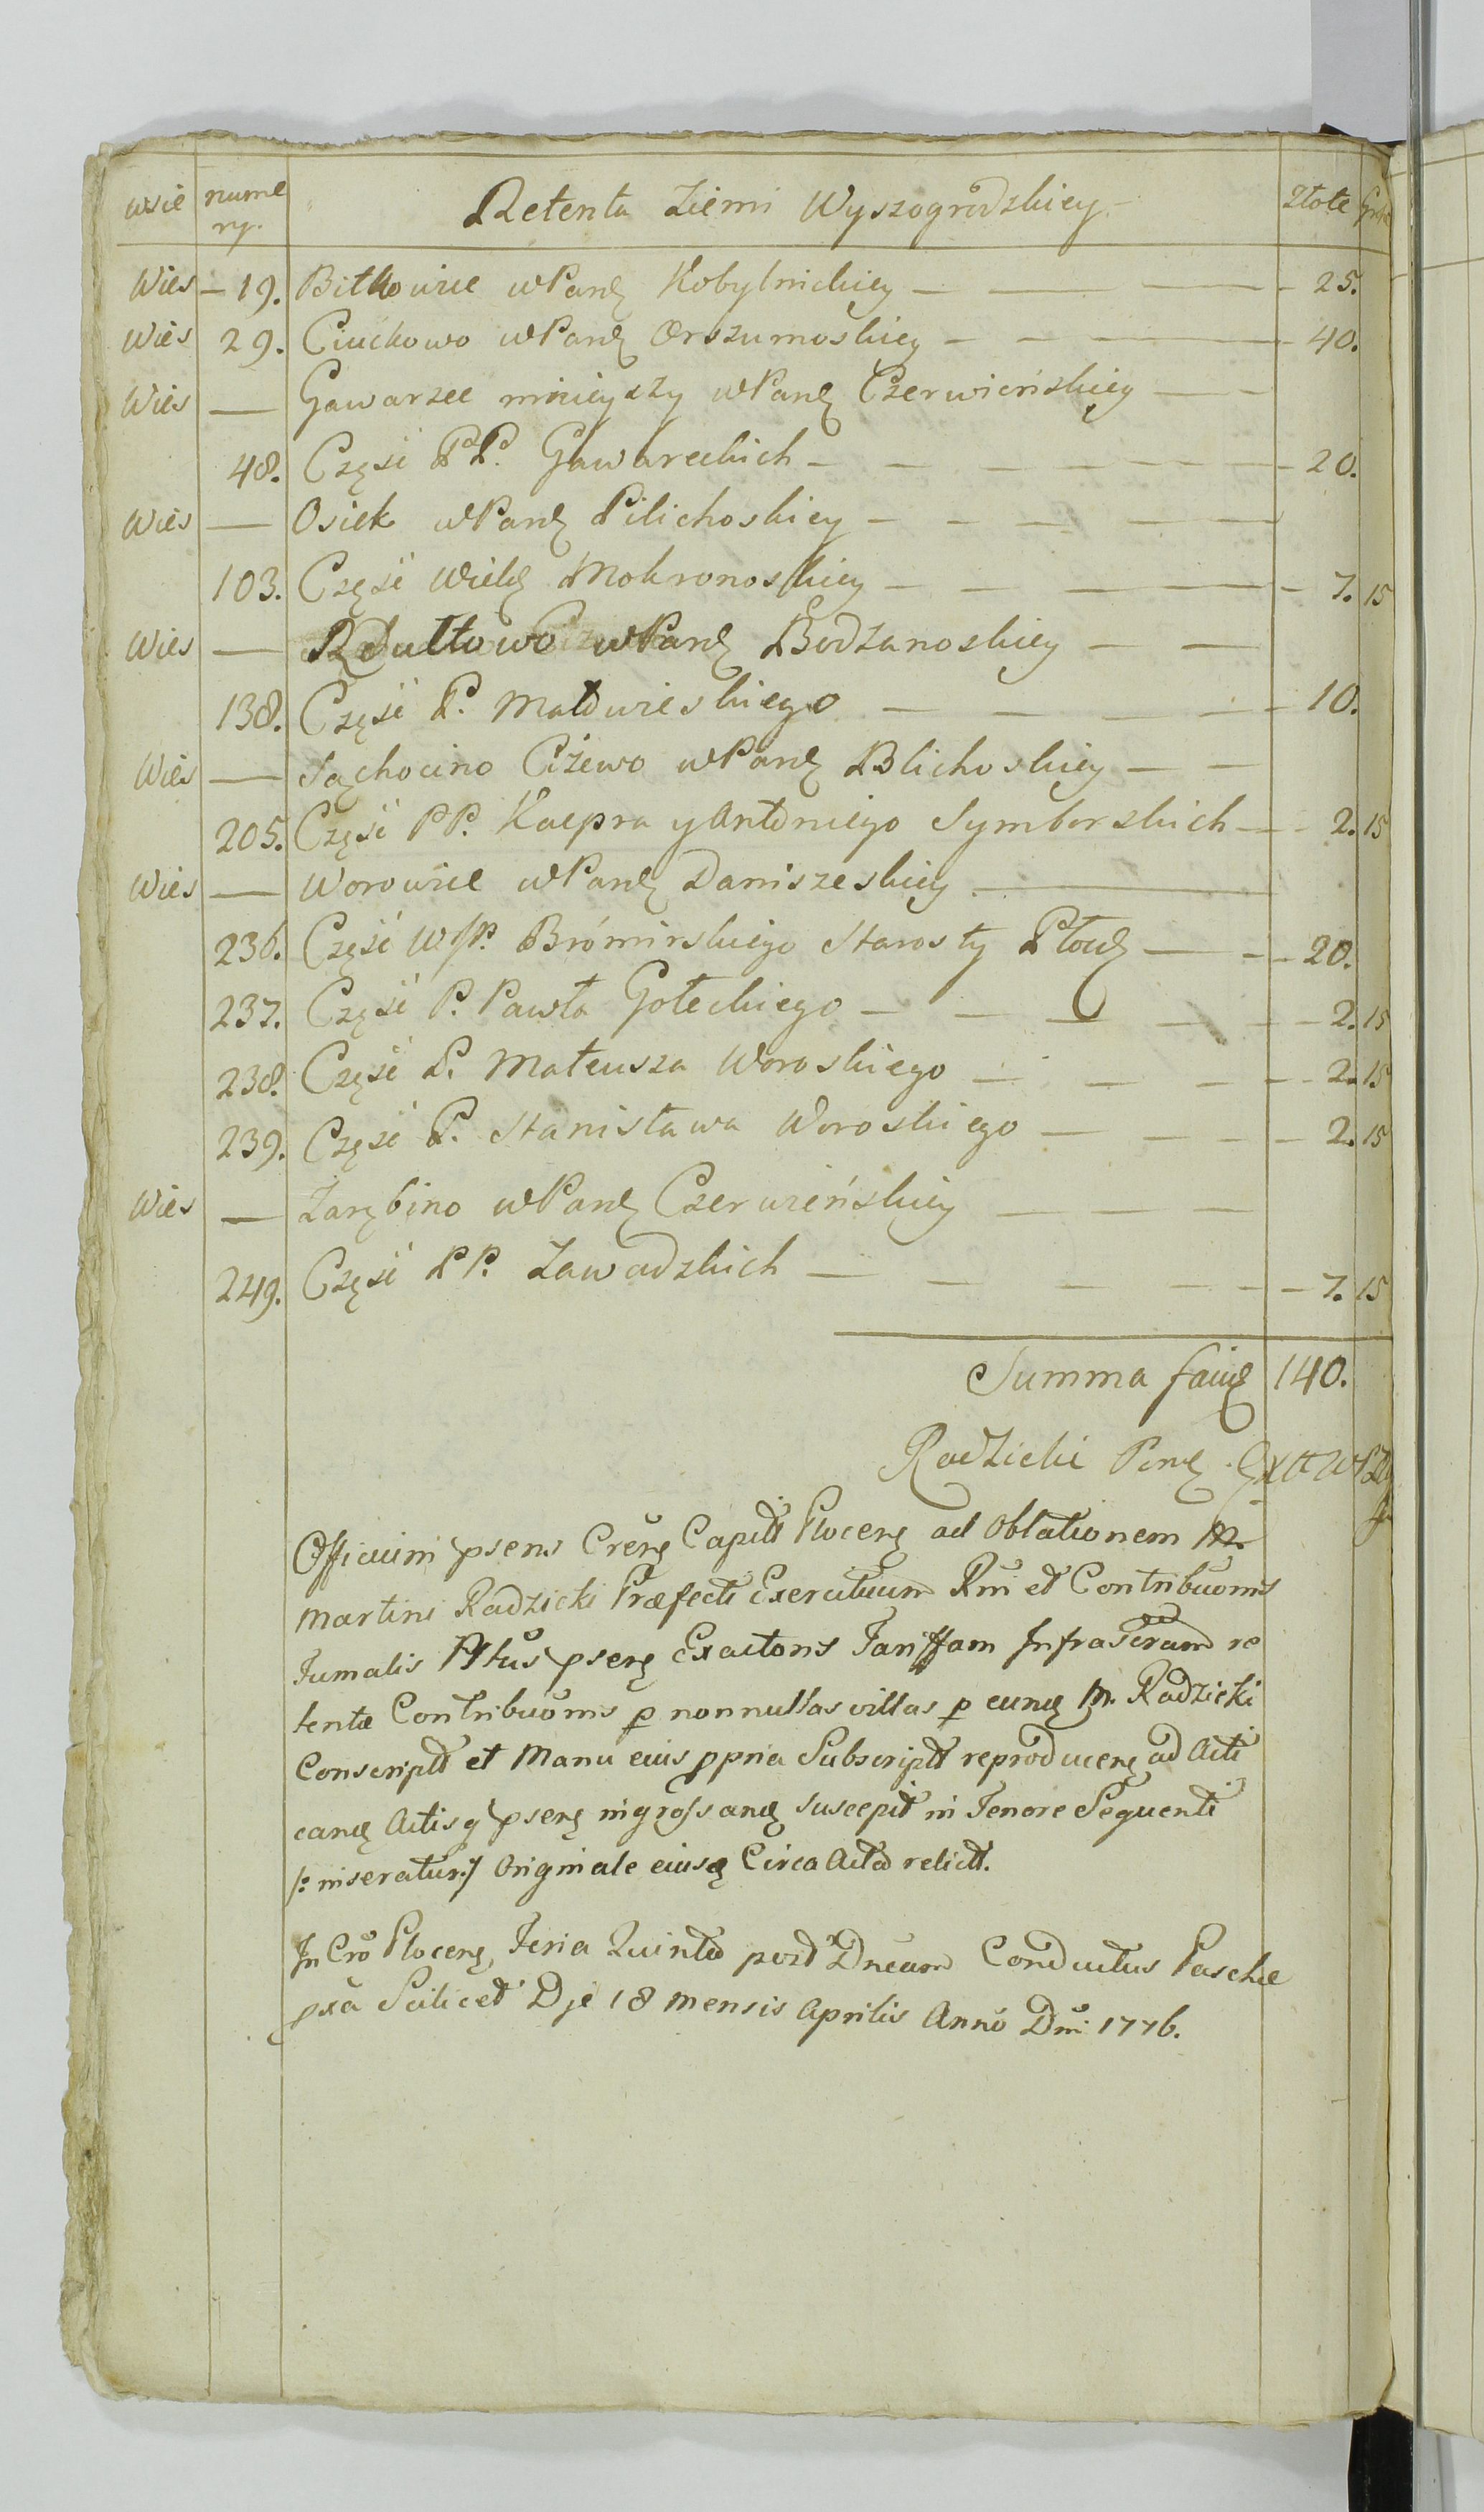 wsie numery. Retenta Ziemi Wyszogrodzkiey. Złote
Wies – 19. Bitkowice w Parȩ Kobylnickiey — 25.
Wies 29. Ciućkowo w Parȩ Orszumoskiey — 40.
Wies — Gawarzec mnieyszy w Parȩ Czerwieńskiey
48. Część PP. Gawareckich — 20.
Wies — Osiek w Parȩ Pilichoskiey
103. Część Wielȩ Mokronoskiey — 7. 15
Wies — Rędułtowo w Parȩ Bodzanoskiey
138. Część P. Małowieskiego — 10.
Wies — Sąchocino Ciżewo w Parȩ Blichoskiey
205. Część PP. Kacpra y Antoniego Symborskich — 2. 15
Wies — Worowice w Parȩ Daniszeskiey
236. Część WJP. Brómirskiego Starosty Płouȩ — 20.
237. Część P. Pawła Goteckiego — 2. 15
238. Część P. Mateusza Woroskiego — 2. 15
239. Część P. Stanisława Woroskiego — 2. 15
Wies — Zarębino w Parȩ Czerwieńskiey
249. Część PP. Zawadzkich — 7. 15
Summa faciȩ 140.
Radzicki
Officium psens Crēne Capitł Plocenȩ ad Oblationem M.
Martini Radzicki Præfecti Exercituum Rni et Contribuonis
Fumalis Pltūs psenȩ Exactoris Tariffam Infrascram re
tentæ Contribuōnis p nonnullas villas p eunȩ M. Radzicki
Conscriptā et Manu eius ppria Subscriptā reproducenȩ ad Acti
canȩ Actisq psenȩ ingrossanȩ suscepit in Tenore Sequenti
/: inseratur :/ Originale eiusȩ Circa Acta relictā.
In Crō Plocenȩ, Feria Quinta post Dncam Conductus Paschæ
pxa Scilicet Die 18 mensis Aprilis Anno Dni 1776.